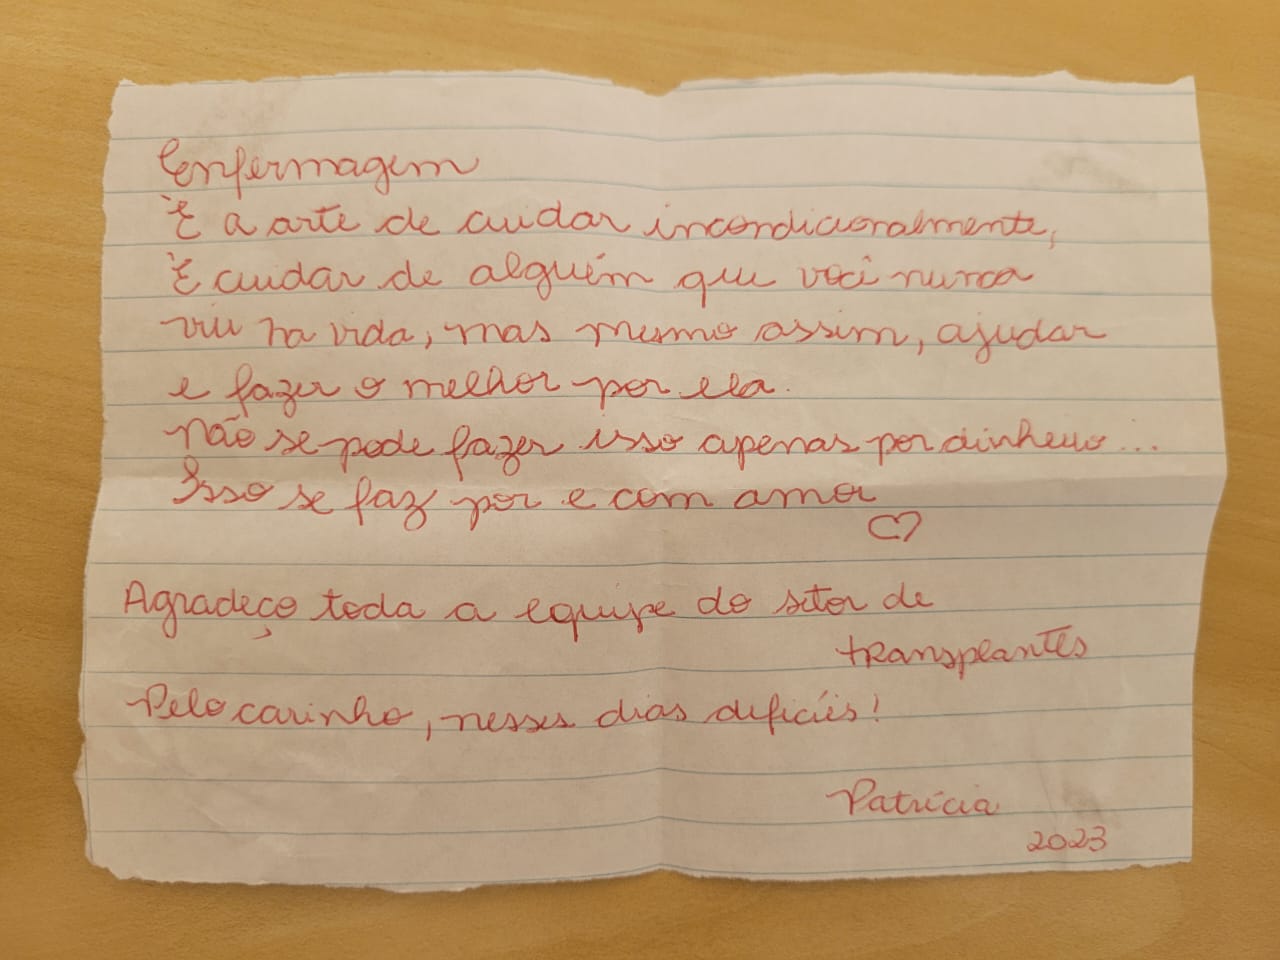 Enfermagem
É a arte de cuidar incondicionalmente,
É cuidar de alguém que você nunca
viu na vida, mas mesmo assim, ajudar
e fazer o melhor por ela.
Não se pode fazer isso apenas por dinheiro...
Isso se faz por e com amor
♡
Agradeço toda a equipe do setor de
transplantes
Pelo carinho, nesses dias deficiés!
Patrícia
2023